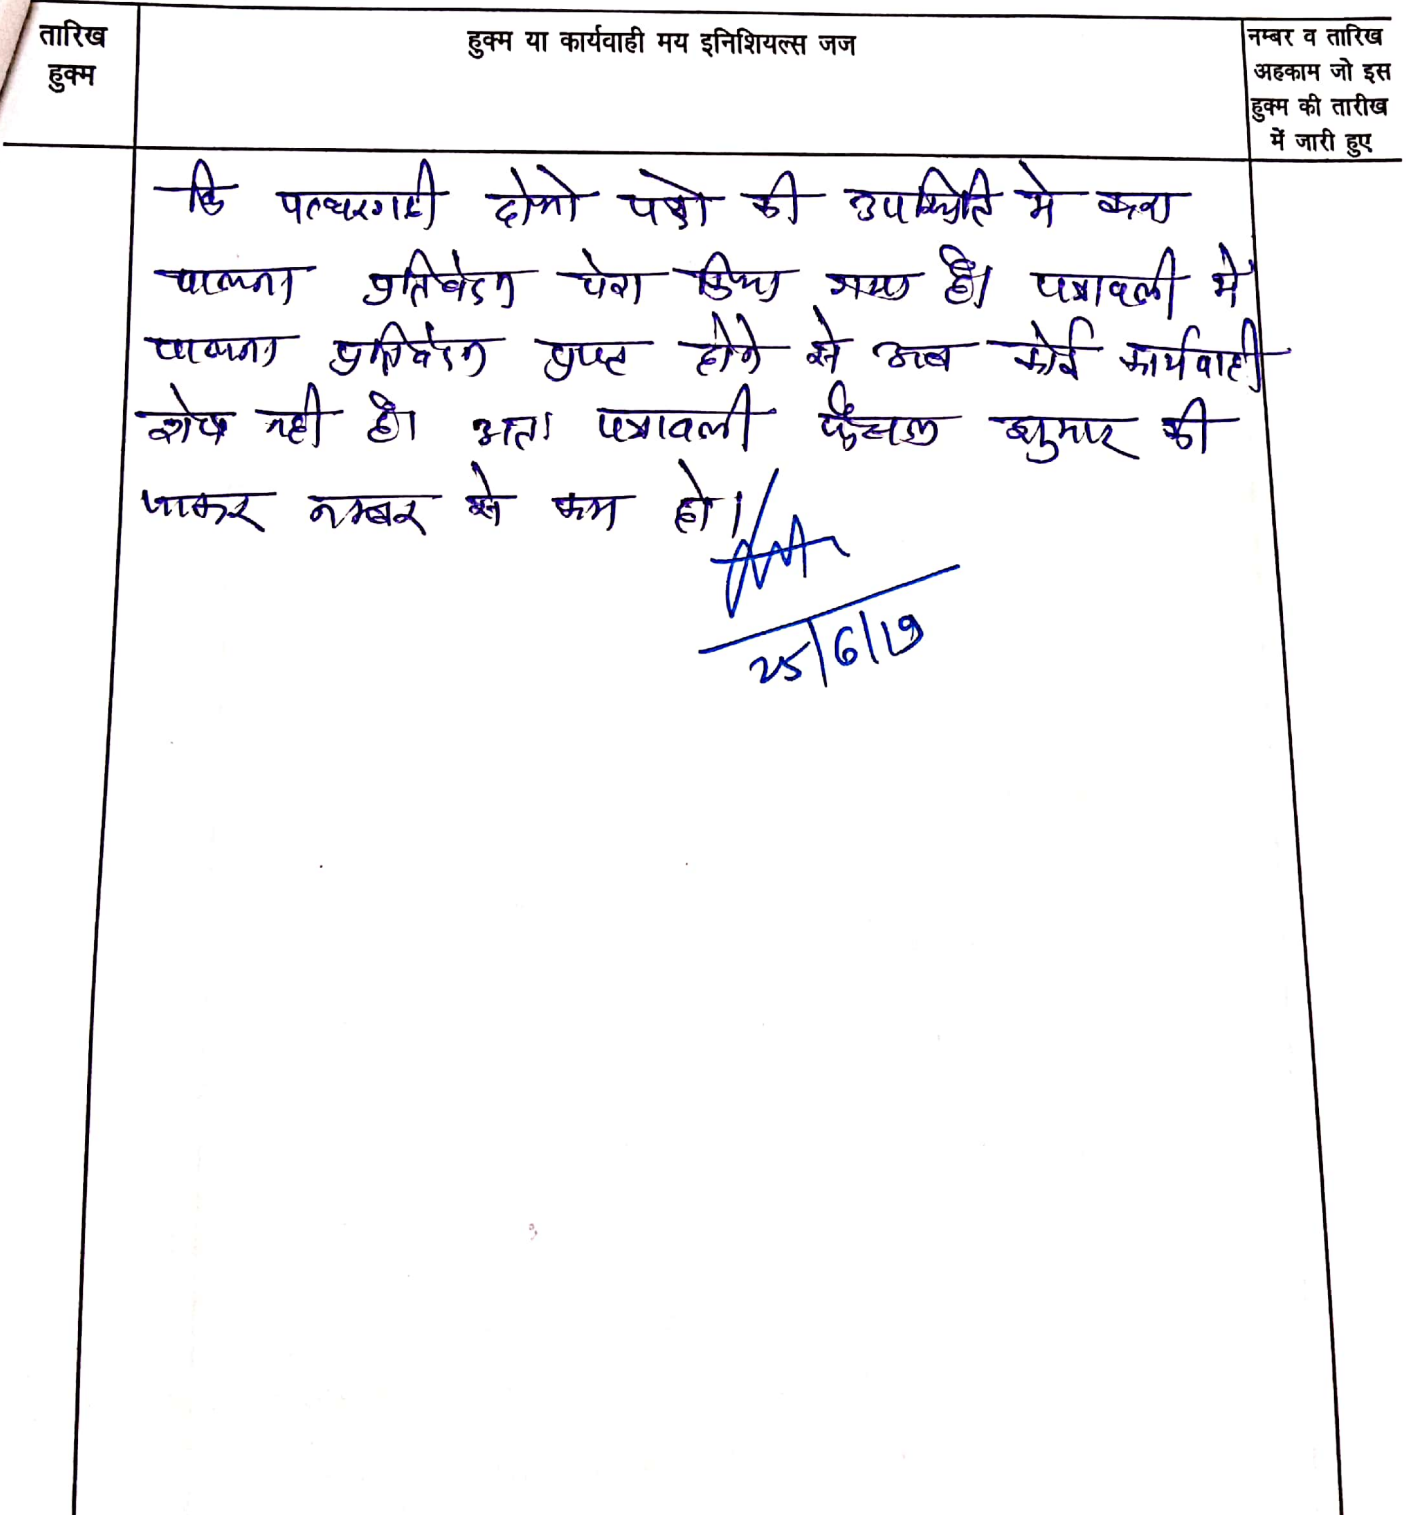 तारिख
हुक्म
हुक्म या कार्यवाही मय इनिशियल्स जज
नम्बर व तारिख
अहकाम जो इस
हुक्म की तारीख
में जारी हुए
कि पत्थरगढी दोनो पक्षो की उपस्थिति मे करा
पालना प्रतिवेदन पेश किया गया है। पत्रावली में
पालना प्रतिवेदन प्राप्त होने से अब कोई कार्यवाही
शेष नही है। अतः पत्रावली फैसल शुमार की
जाकर नम्बर से कम हो।
25/6/19